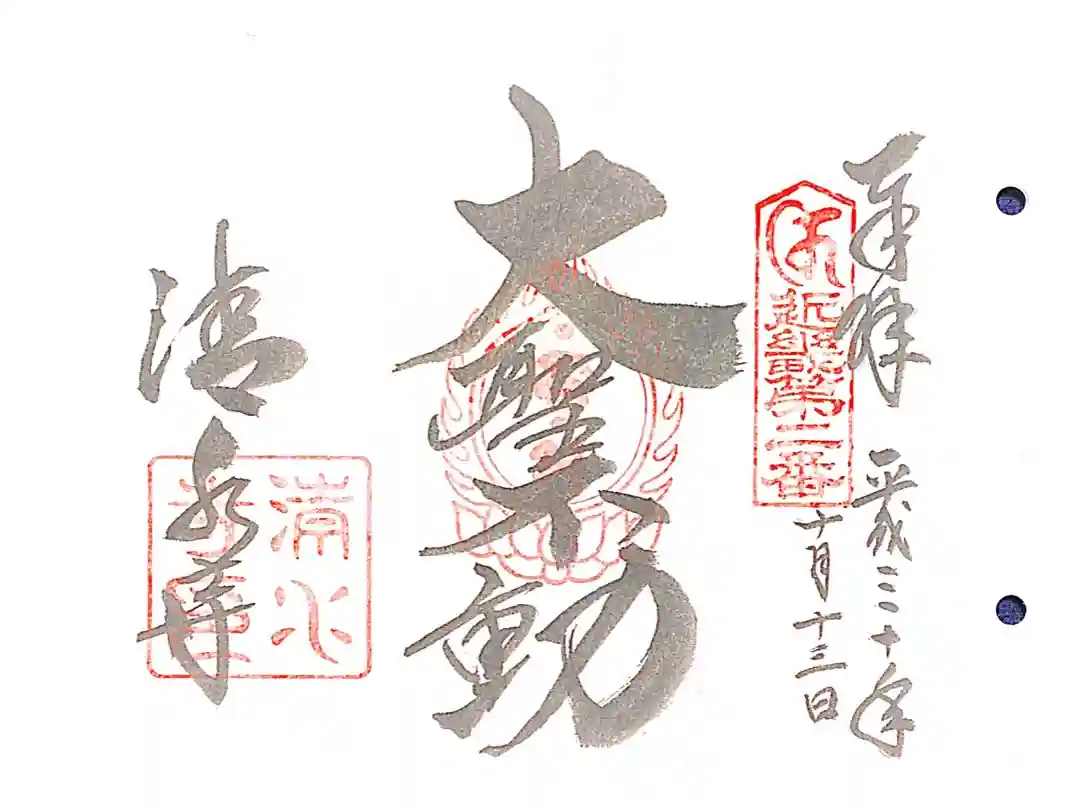 奉拝
平成三十年
十月十三日
近畿第二番
大聖不動
清水寺
清水